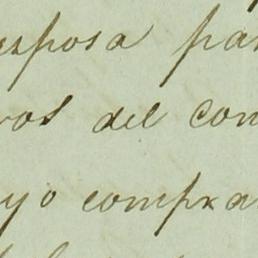 esposa par
vos del con
yo compra